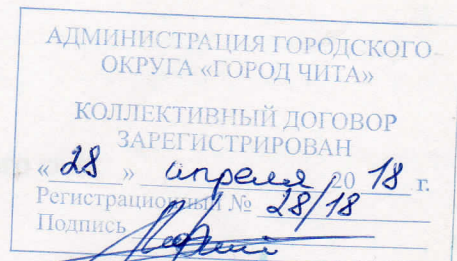 АДМИНИСТРАЦИЯ ГОРОДСКОГО
ОКРУГА «ГОРОД ЧИТА»
КОЛЛЕКТИВНЫЙ ДОГОВОР
ЗАРЕГИСТРИРОВАН
« 28 » апреля 20 18 г.
Регистрационный № 28/18
Подпись